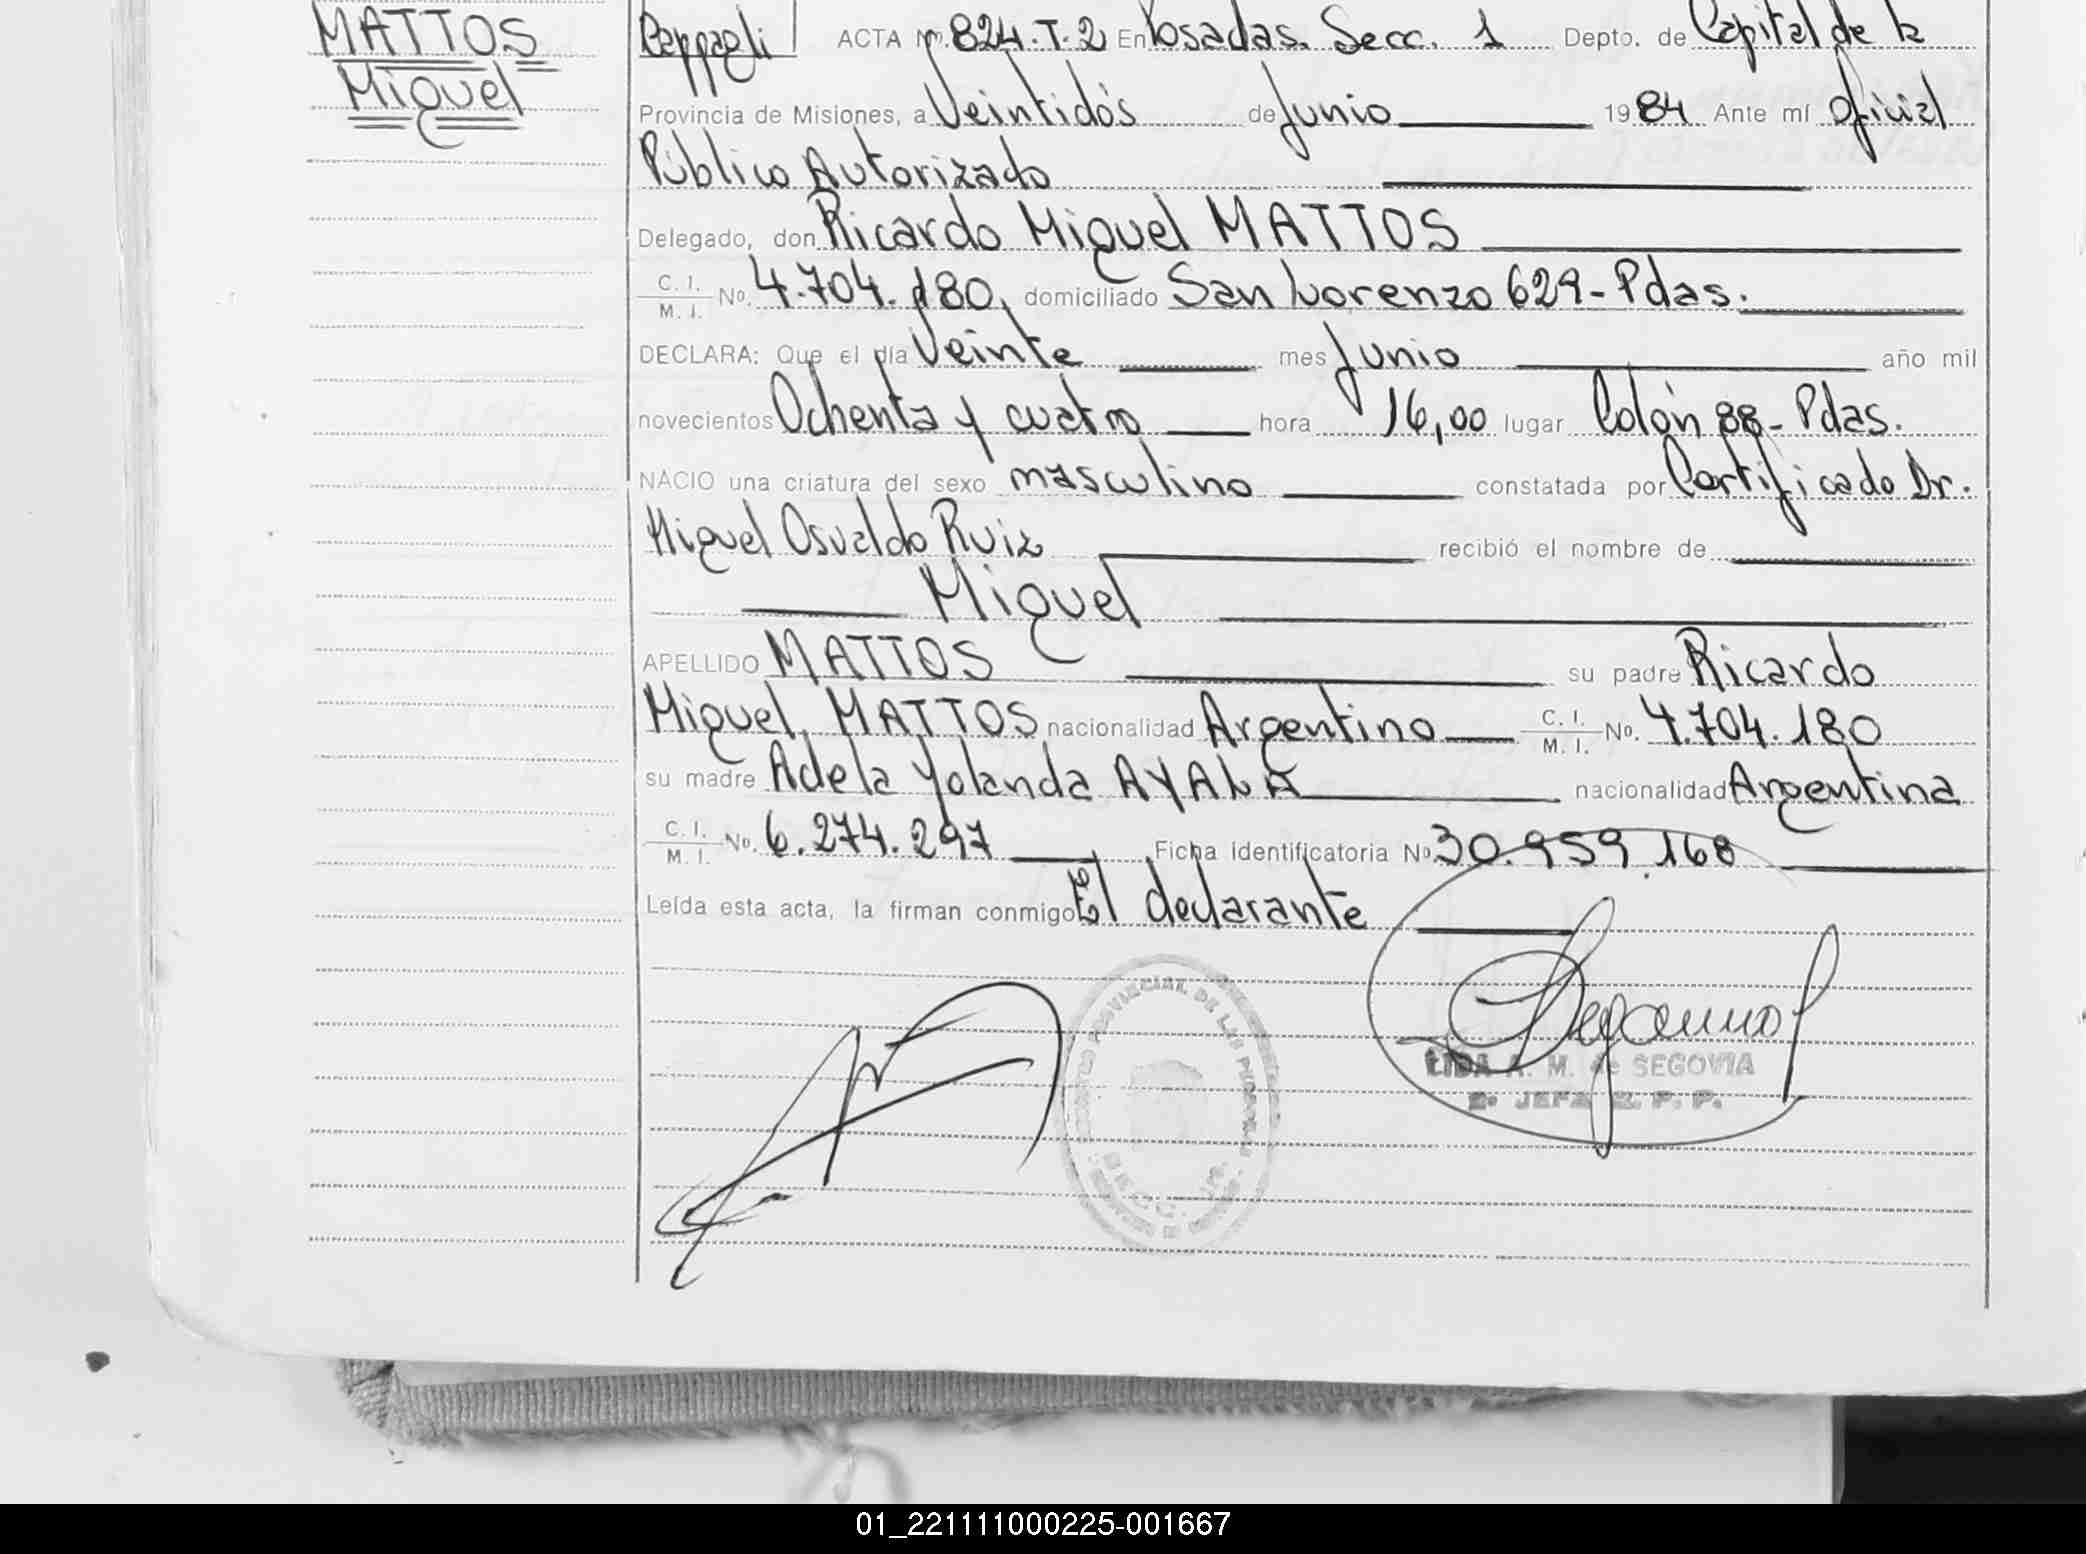 MATTOS
Miguel
ACTA Nº. 824.T.2 En Posadas. Secc. 1 Depto. de Capital de la
Provincia de Misiones, a Veintidós de Junio 1984 Ante mí Oficial
Público Autorizado
Delegado, don Ricardo Miguel MATTOS
C. I. / M. I. No. 4.704.180, domiciliado San Lorenzo 629-Pdas.
DECLARA: Que el día Veinte mes Junio año mil
novecientos Ochenta y cuatro hora 16,00 lugar Colón 88-Pdas.
NACIO una criatura del sexo masculino constatada por Certificado Dr.
Miguel Osvaldo Ruiz recibió el nombre de
Miguel
APELLIDO MATTOS su padre Ricardo
Miguel, MATTOS nacionalidad Argentino C. I. / M. I. No. 4.704.180
su madre Adela Yolanda AYALA nacionalidad Argentina
C. I. / M. I. No. 6.274.297 Ficha identificatoria No 30.959.168
Leída esta acta, la firman conmigo El declarante
PROVINCIAL DE LAS PERSONAS
LIDA A. M. de SEGOVIA
2º JEFA R. P. P.
01_221111000225-001667